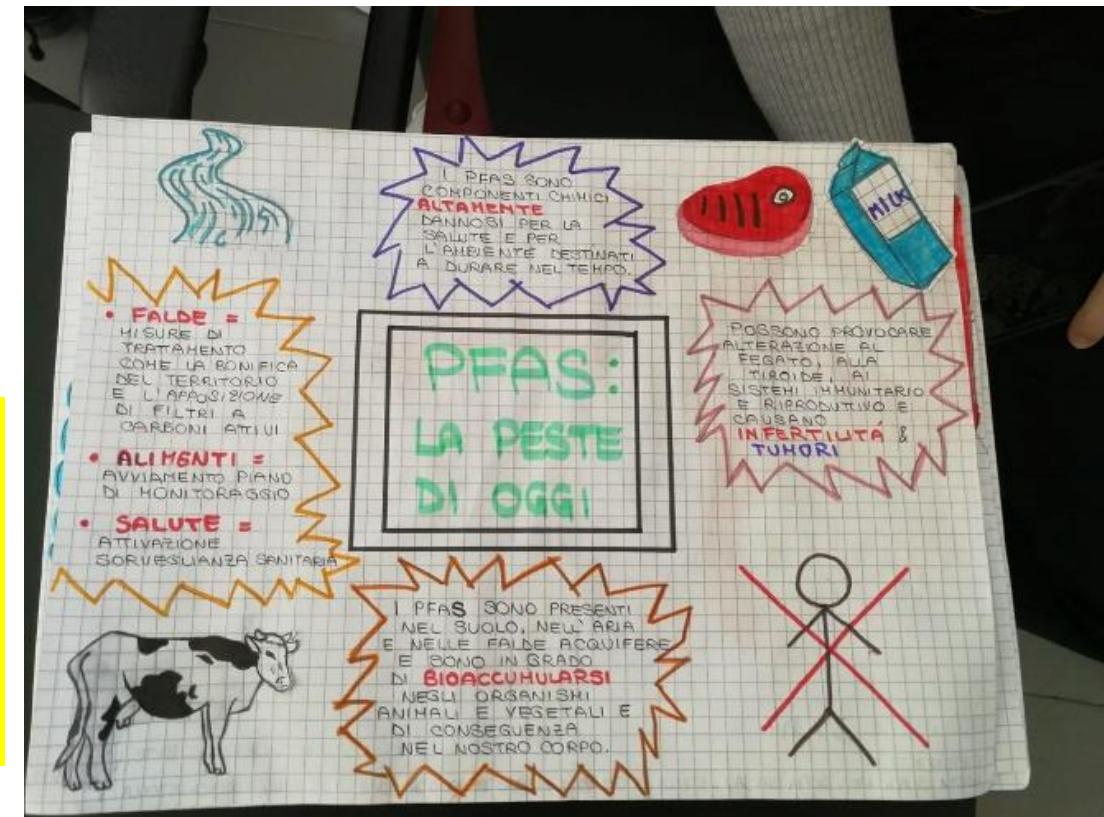 I PFAS SONO
COMPONENTI CHIMICI
ALTAMENTE
DANNOSI PER LA
SALUTE E PER
L'AMBIENTE DESTINATI
A DURARE NEL TEMPO.
MILK
• FALDE =
MISURE DI
TRATTAMENTO
COME LA BONIFICA
DEL TERRITORIO
E L'APPOSIZIONE
DI FILTRI A
CARBONI ATTIVI
• ALIMENTI =
AVVIAMENTO PIANO
DI MONITORAGGIO
• SALUTE =
ATTIVAZIONE
SORVEGLIANZA SANITARIA
PFAS:
LA PESTE
DI OGGI
POSSONO PROVOCARE
ALTERAZIONE AL
FEGATO, ALLA
TIROIDE, AI
SISTEMI IMMUNITARIO
E RIPRODUTTIVO E
CAUSANO
INFERTILITÁ &
TUMORI
I PFAS SONO PRESENTI
NEL SUOLO, NELL'ARIA
E NELLE FALDE ACQUIFERE
E SONO IN GRADO
DI BIOACCUMULARSI
NEGLI ORGANISMI
ANIMALI E VEGETALI E
DI CONSEGUENZA
NEL NOSTRO CORPO.